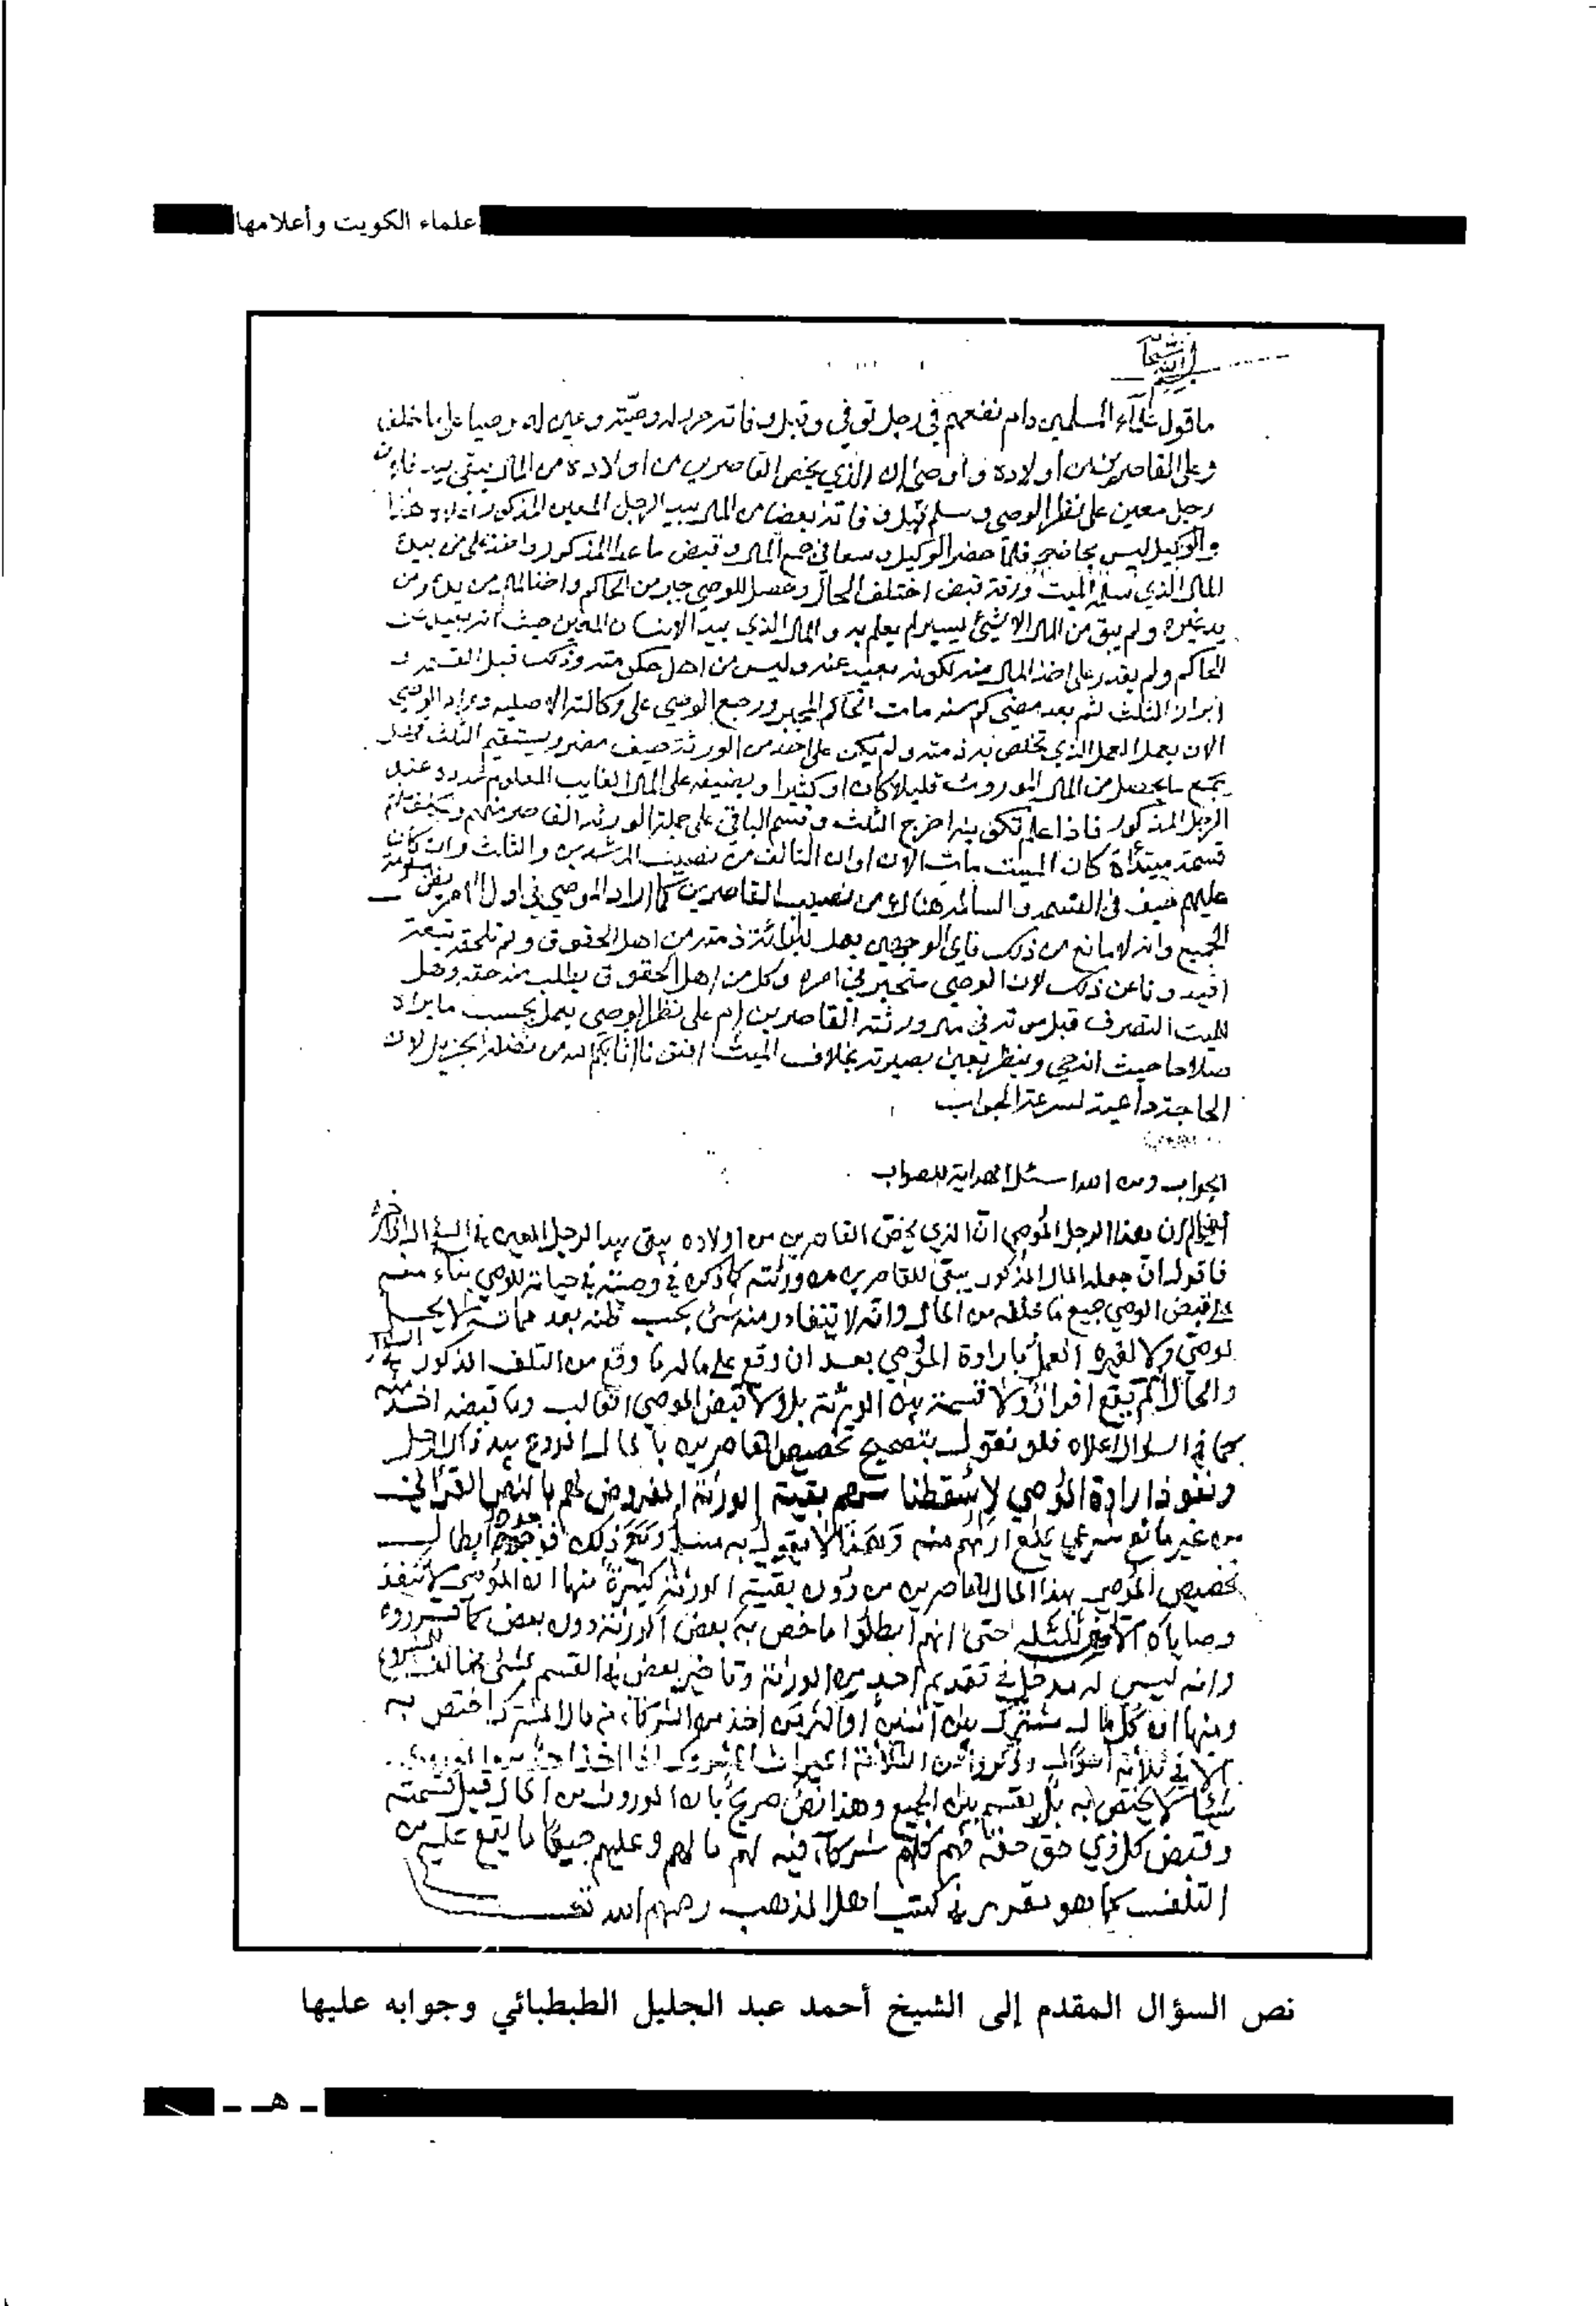 علماء الكويت وأعلامها
ما قول علماء المسلمين دام نفعهم في رجل توفي وقبل وفاته حرر له وصيته وعين له وصيا على ما خلف
وعلى القاصرين من اولاده واوصى ان الذي يخص القاصرين من اولاده من المال يبقى بيد
رجل معين على نظر الوصي وسلم قبل وفاته بعضا من المال بيد الرجل المعين المذكور اعلاه هذا
والوكيل ليس بحاضر فلما حضر الوكيل وسعا في جمع المال وقبض ما عدا المذكور واخذ على من بيده
المال الذي سلمه الميت ورقة قبض اختلف الحال وحصل للوصي جبر من الحاكم واخذ المال من يده ومن
يد غيره ولم يبق من المال الا شيئ يسير لم يعلم به والمال الذي بيد الانسان المعين حيث انه بعيد عن
الحاكم ولم يقدر على اخذ المال منه لكونه بعيد عنه وليس من اهل حكومته وذلك قبل القسمة و
افراز الثلث ثم بعد مضي كم سنه مات الحاكم المجبر ورجع الوصي على وكالته الاصليه ومراد الوصي
الان يعمل العمل الذي تخلص به ذمته ولم يكن على احد من الورثة حيف مضر ويستقيم الثلث
يجمع ما يحصل من المال الموروث قليلا كان او كثيرا ويضيفه على المال الغايب المعلوم عند
الرجل المذكور فاذا اخرج الثلث وقسم الباقي على جملة الورثة القاصر منهم
قسمة مبتدأة كان الميت مات الان او ان التالف من نصيب المرشدين والثلث وان كان
عليهم حيف في القسمه والسالم هناك من نصيب القاصرين كما اراد الموصي في اول الامر
الجميع وانه لا مانع من ذلك فاي الوجهين يعمل لبرائة ذمته من اهل الحقوق ولم تلحقه تبعته
افيدونا عن ذلك لان الوصي متحير في امره وكل من اهل الحقوق يطلب منه حقه وهل
للميت التصرف قبل موته في ورثته القاصرين ام على نظر الوصي يعمل بحسب ما يراه
صلاحا حيث انه حي وينظر بعين بصيرته بخلاف الميت افتونا اثابكم الله من فضله الجزيل لان
الحاجة داعية لسرعة الجواب
الجواب ومن الله اسئل الهداية للصواب
ان هذا الرجل الموصي ان الذي يخص القاصرين من اولاده يبقى بيد الرجل المعين في السؤال
فاقول ان جعله المال المذكور يبقى للقاصرين من ورثته كما ذكره في وصيته في حياته للوصي بناء منه
على قبض الوصي جميع ما خلفه من المال وانه لا يتغادر منه شئ بحسب ظنه بعد مماته لا يحل
لوصي ولا لغيره العمل بارادة الموصي بعد ان وقع على ماله ما وقع من التلف المذكور
والحال لم يقع افراز ولا قسمة بين الورثة بل ولا قبض الوصي الغالب وما قبضه اخذ منه
كما في السؤال اعلاه فلو نقول بتصحيح تخصيص القاصرين بالمال المودوع بيد ذاك الرجل
ونفوذ ارادة الموصي لاسقطنا سهم بقية الورثة المفروض لهم بالنص القرآني
من غير مانع شرعي يمنع ارثهم منه وهذا لا يقول به مسلم
تخصيص الموصي بهذا المال القاصرين من دون بقية الورثة كثيرة منها ان الموصي لا تنفذ
وصاياه الا في ثلثه حتى انهم ابطلوا ما خص به بعض الورثة دون بعض كما قرروه
وانه ليس له مدخل في تقديم احد من الورثة وتاخير بعض في القسم بشئ مخالف للمشروع
ومنها ان كل مال مشترك بين اثنين او اكثر من اخذ من الشركاء من مال المشترك اختص به
الا في ثلاثة اموال وذكروا من الثلاثة الميراث المشترك اذا اخذ احد من
شيئا لا يختص به بل يقسم بين الجميع وهذا نص صريح بان الموروث من المال قبل قسمته
وقبض كل ذي حق حقه فهم كلهم شركاء فيه لهم ما لهم وعليهم جميعا ما يقع عليه من
التلف كما هو مقرر في كتب اهل المذهب رحمهم الله تعالى
نص السؤال المقدم إلى الشيخ أحمد عبد الجليل الطبطبائي وجوابه عليها
- هـ -